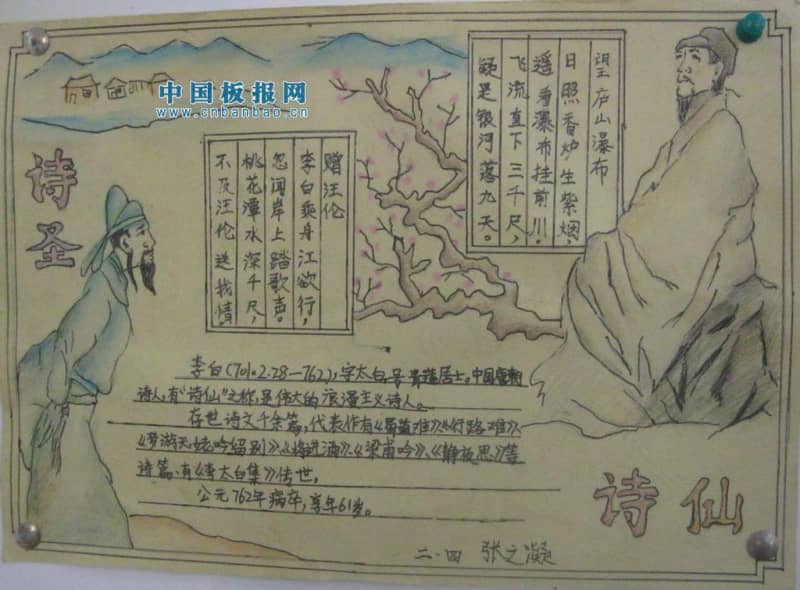 中国板报网
www.cnbanbao.cn
诗圣
赠汪伦
李白乘舟江欲行，
忽闻岸上踏歌声。
桃花潭水深千尺，
不及汪伦送我情
望庐山瀑布
日照香炉生紫烟，
遥看瀑布挂前川。
飞流直下三千尺，
疑是银河落九天。
李白(701.2.28—762)，字太白，号青莲居士。中国唐朝
诗人，有“诗仙”之称，是伟大的浪漫主义诗人。
存世诗文千余篇，代表作有《蜀道难》《行路难》
《梦游天姥吟留别》、《将进酒》、《梁甫吟》、《静夜思》等
诗篇、有《李太白集》传世，
公元762年病卒，享年61岁。
诗仙
二·四 张之凝